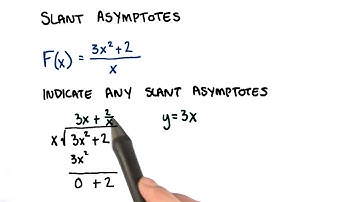 SLANT ASYMPTOTES
F(x) = 3x²+2 / x
INDICATE ANY SLANT ASYMPTOTES
3x + 2/x
y=3x
x√3x²+2
3x²
0 + 2